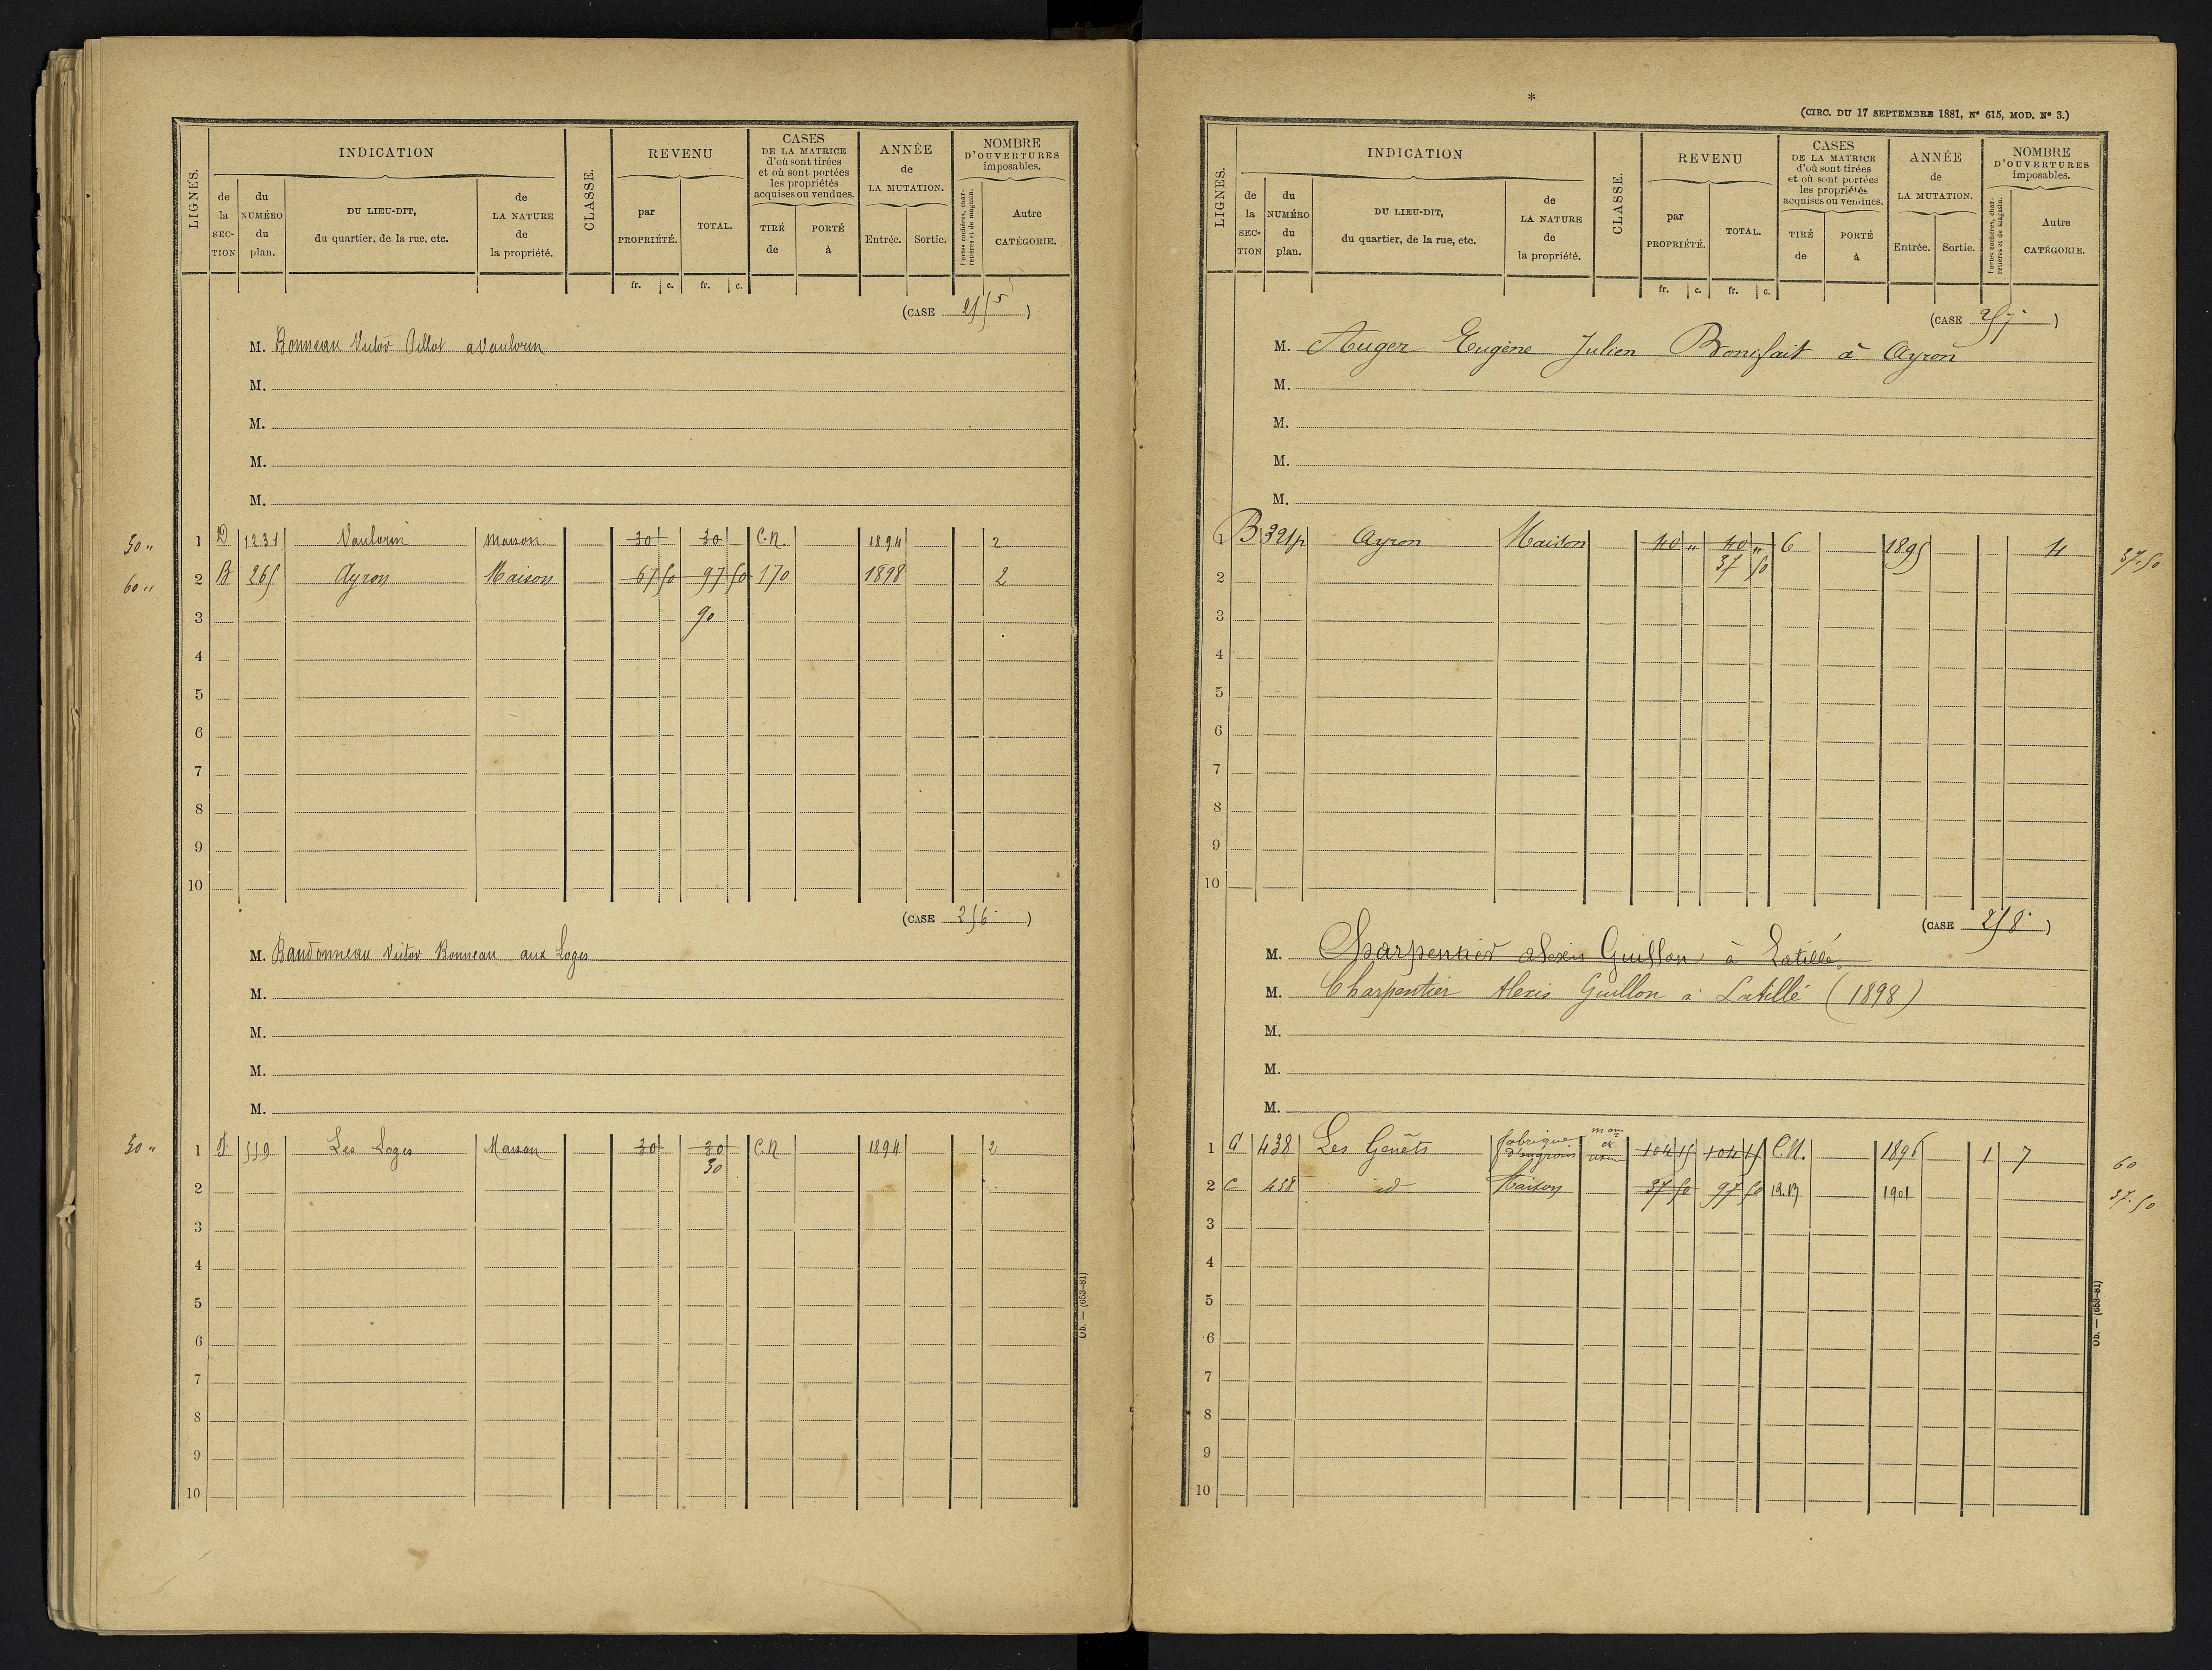 LIGNES.
INDICATION
de la SECTION
du NUMÉRO du plan.
DU LIEU-DIT, du quartier, de la rue, etc.
de LA NATURE de la propriété.
CLASSE.
REVENU
par PROPRIÉTÉ.
TOTAL.
fr. c. fr. c.
CASES DE LA MATRICE d'où sont tirées et où sont portées les propriétés acquises ou vendues.
TIRÉ de
PORTÉ à
ANNÉE de LA MUTATION.
Entrée. Sortie.
NOMBRE D'OUVERTURES imposables.
Portes cochères, charretières et de magasin.
Autre CATÉGORIE.
(CASE 255)
M. Bonneau Victor Pillot a Vaulorin
M.
M.
M.
M.
30 " 1 D 1231 Vaulorin Maison 30 30 C.N. 1894 2
60 " 2 B 265 Ayron Maison 67 50 97 50 170 1898 2
3 90
4
5
6
7
8
9
10
(CASE 256)
M. Baudonneau Victor Bonneau aux Loges
M.
M.
M.
M.
30 " 1 559 Les Loges Maison 30 30 C.N 1894 2
30
2
3
4
5
6
7
8
9
10
Ob. — (653-81)
*
(CIRC. DU 17 SEPTEMBRE 1881, N° 615, MOD. N° 3.)
LIGNES.
INDICATION
de la SECTION
du NUMÉRO du plan.
DU LIEU-DIT, du quartier, de la rue, etc.
de LA NATURE de la propriété.
CLASSE.
REVENU
par PROPRIÉTÉ.
TOTAL.
fr. c. fr. c.
CASES DE LA MATRICE d'où sont tirées et où sont portées les propriétés acquises ou vendues.
TIRÉ de
PORTÉ à
ANNÉE de LA MUTATION.
Entrée. Sortie.
NOMBRE D'OUVERTURES imposables.
Portes cochères, charretières et de magasin.
Autre CATÉGORIE.
(CASE 257)
M. Auger Eugène Julien Bonifait à Ayron
M.
M.
M.
M.
1 B 321p Ayron Maison 40 " 40 " 6 1895 4 37.50
37 50
2
3
4
5
6
7
8
9
10
(CASE 258)
M. Charpentier Alexis Guillon à Latillé
M. Charpentier Alexis Guillon à Latillé (1898)
M.
M.
M.
1 C 438 Les Genêts fabrique d'engrais mon et usine 104 15 104 15 C.N. 1896 1 7 60
2 C 438 id Maison 37 50 97 50 1901 37.50
3
4
5
6
7
8
9
10
Ob. — (653-81)